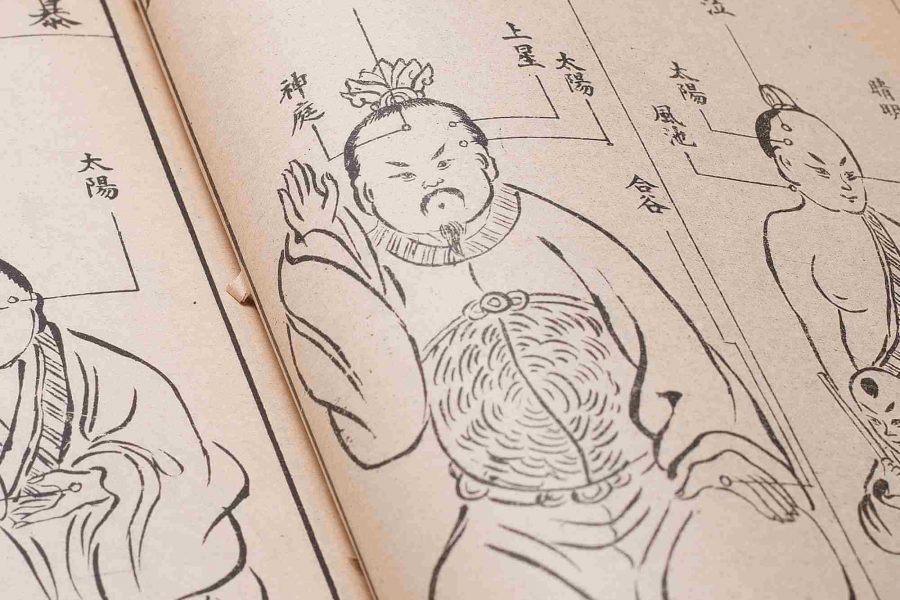 暴
太陽
神庭
上星
太陽
合谷
太陽
風池
睛明